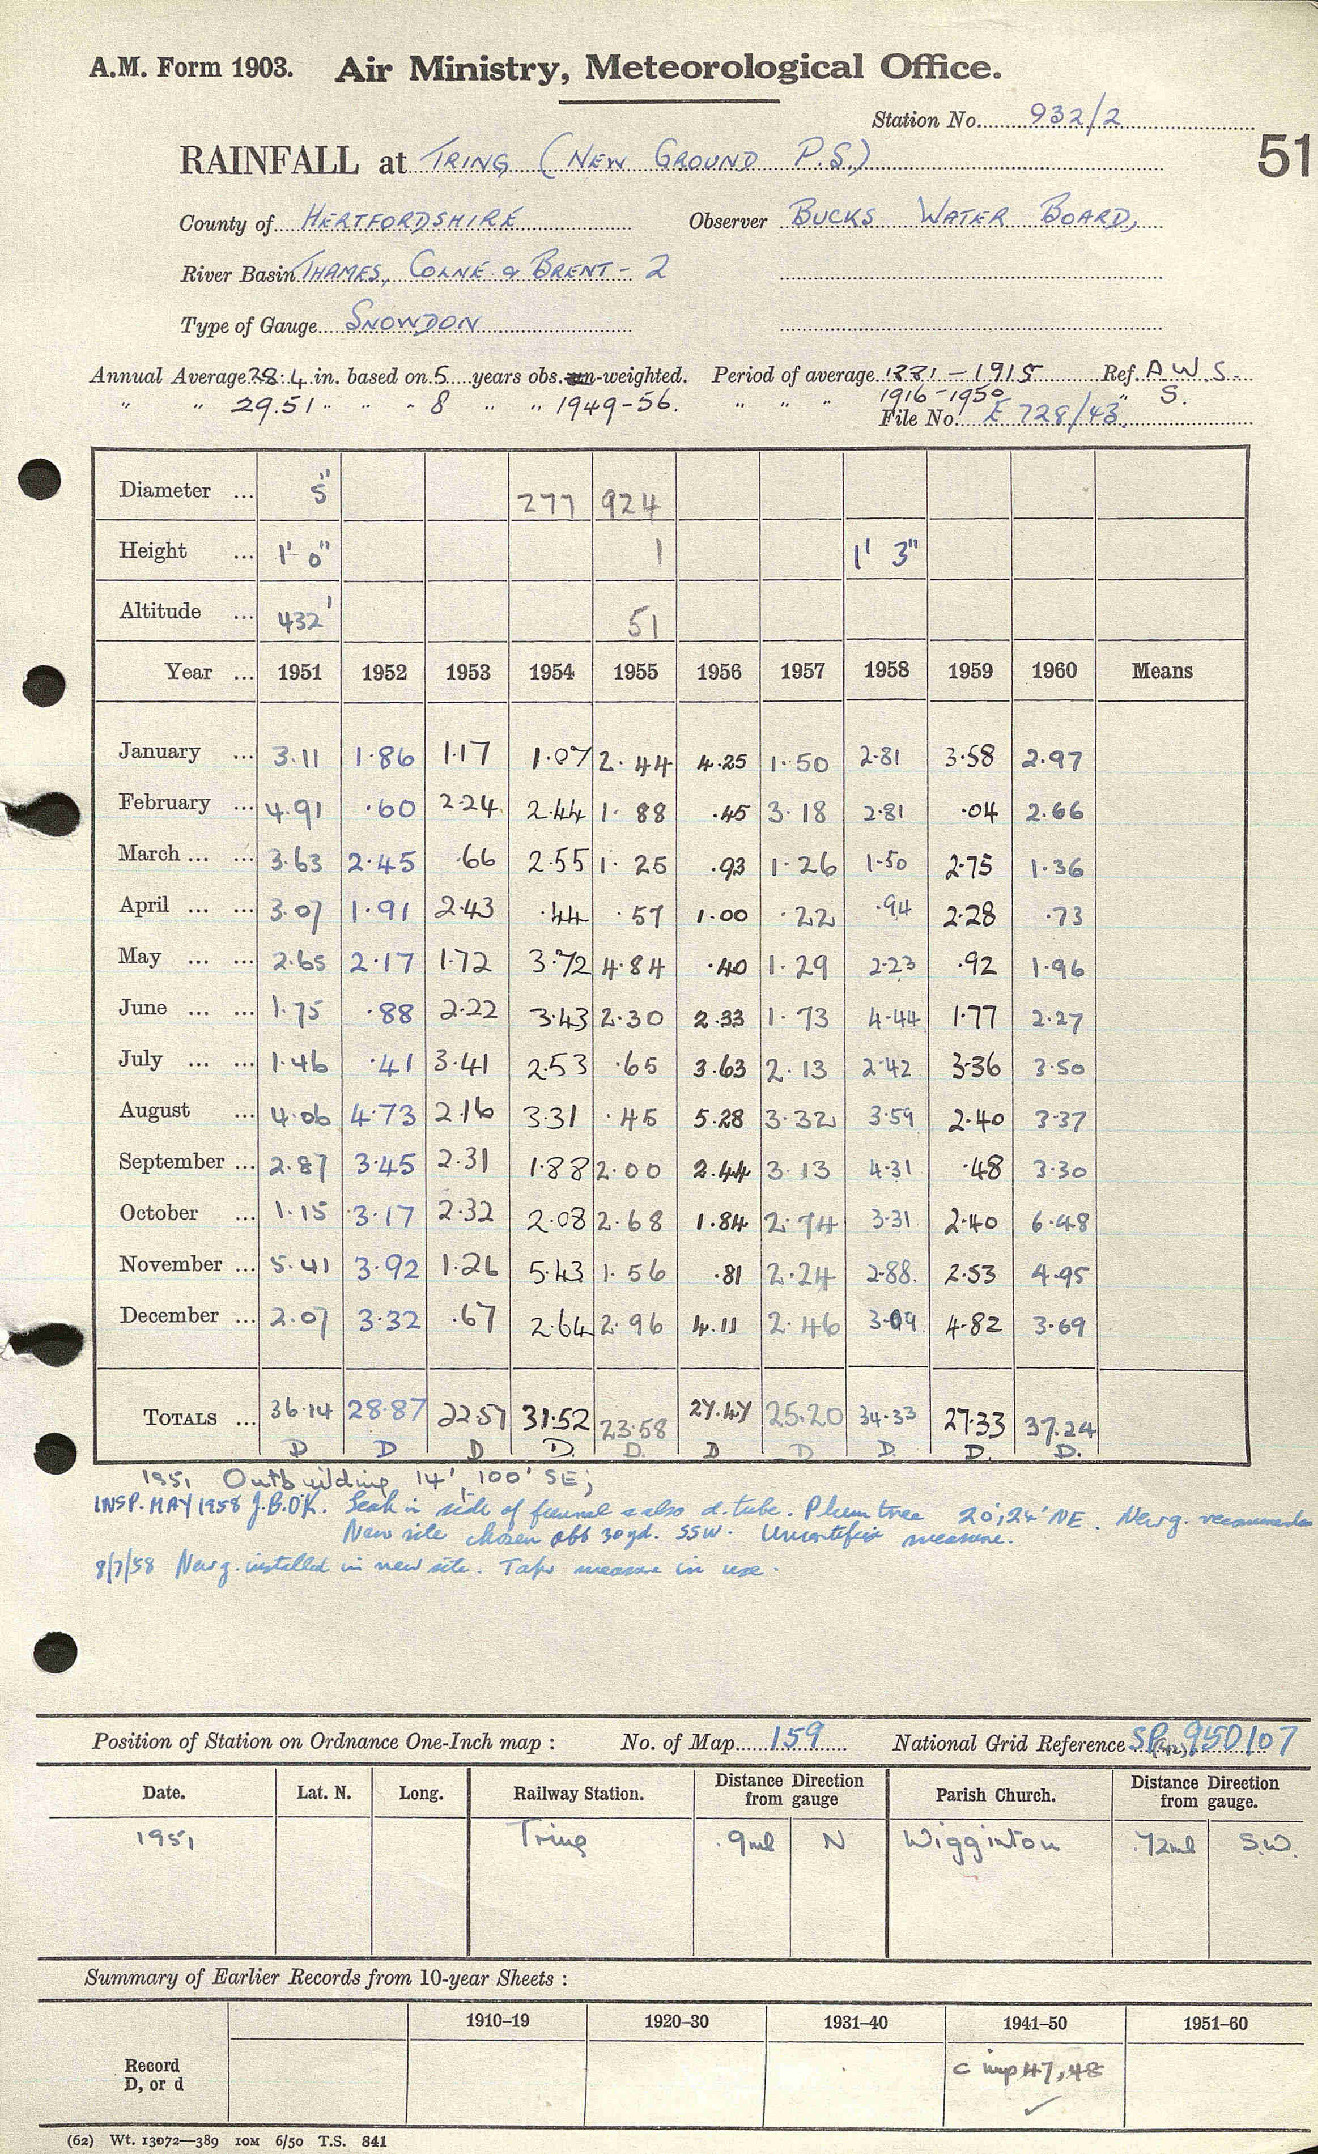 A.M. Form 1903. Air Ministry, Meteorological Office.
Station No. 932/2
51
RAINFALL at TRING (NEW GROUND P.S.)
County of HERTFORDSHIRE Observer BUCKS WATER BOARD,
River Basin THAMES, COLNE & BRENT - 2
Type of Gauge SNOWDON
Annual Average 28.4 in. based on 5 years obs. un-weighted. Period of average 1881 - 1915 Ref. A.W.S.
" " 29.51 " " " 8 " " 1949-56. " " " 1916-1950 " S.
File No. E 728/43
Diameter ... 5" 277 924
Height ... 1' 0" 1 1' 3"
Altitude ... 432' 51
Year ... 1951 1952 1953 1954 1955 1956 1957 1958 1959 1960 Means
January ... 3.11 1.86 1.17 1.07 2.44 4.25 1.50 2.81 3.58 2.97
February ... 4.91 .60 2.24 2.44 1.88 .45 3.18 2.81 .04 2.66
March ... ... 3.63 2.45 .66 2.55 1.25 .93 1.26 1.50 2.75 1.36
April ... ... 3.07 1.91 2.43 .44 .57 1.00 .22 .94 2.28 .73
May ... ... 2.65 2.17 1.72 3.72 4.84 .40 1.29 2.23 .92 1.96
June ... ... 1.75 .88 2.22 3.43 2.30 2.33 1.73 4.44 1.77 2.27
July ... ... 1.46 .41 3.41 2.53 .65 3.63 2.13 2.42 3.36 3.50
August ... 4.06 4.73 2.16 3.31 .45 5.28 3.32 3.59 2.40 3.37
September ... 2.87 3.45 2.31 1.88 2.00 2.44 3.13 4.31 .48 3.30
October ... 1.15 3.17 2.32 2.08 2.68 1.84 2.74 3.31 2.40 6.48
November ... 5.41 3.92 1.26 5.43 1.56 .81 2.24 2.88 2.53 4.95
December ... 2.07 3.32 .67 2.64 2.96 4.11 2.46 3.09 4.82 3.69
TOTALS ... 36.14 28.87 22.57 31.52 23.58 27.47 25.20 34.33 27.33 37.24
D D D D. D. D D D. D. D.
1951 Outbuilding 14', 100' SE;
INSP. MAY 1958 J.B. OK. Leak in side of funnel & also d. tube. Plum tree 20', 24' NE. New g. recommended
New site chosen abt 30yd. SSW. Uncertified measure.
8/7/58 New g. installed in new site. Taper measure in use.
Position of Station on Ordnance One-Inch map : No. of Map 159 National Grid Reference SP (42) 950107
Date. Lat. N. Long. Railway Station. Distance Direction from gauge Parish Church. Distance Direction from gauge.
1951 Tring .9ml N Wigginton .72ml S.W.
Summary of Earlier Records from 10-year Sheets :
1910-19 1920-30 1931-40 1941-50 1951-60
Record D, or d c imp 47, 48
(62) Wt. 13072—389 10M 6/50 T.S. 841